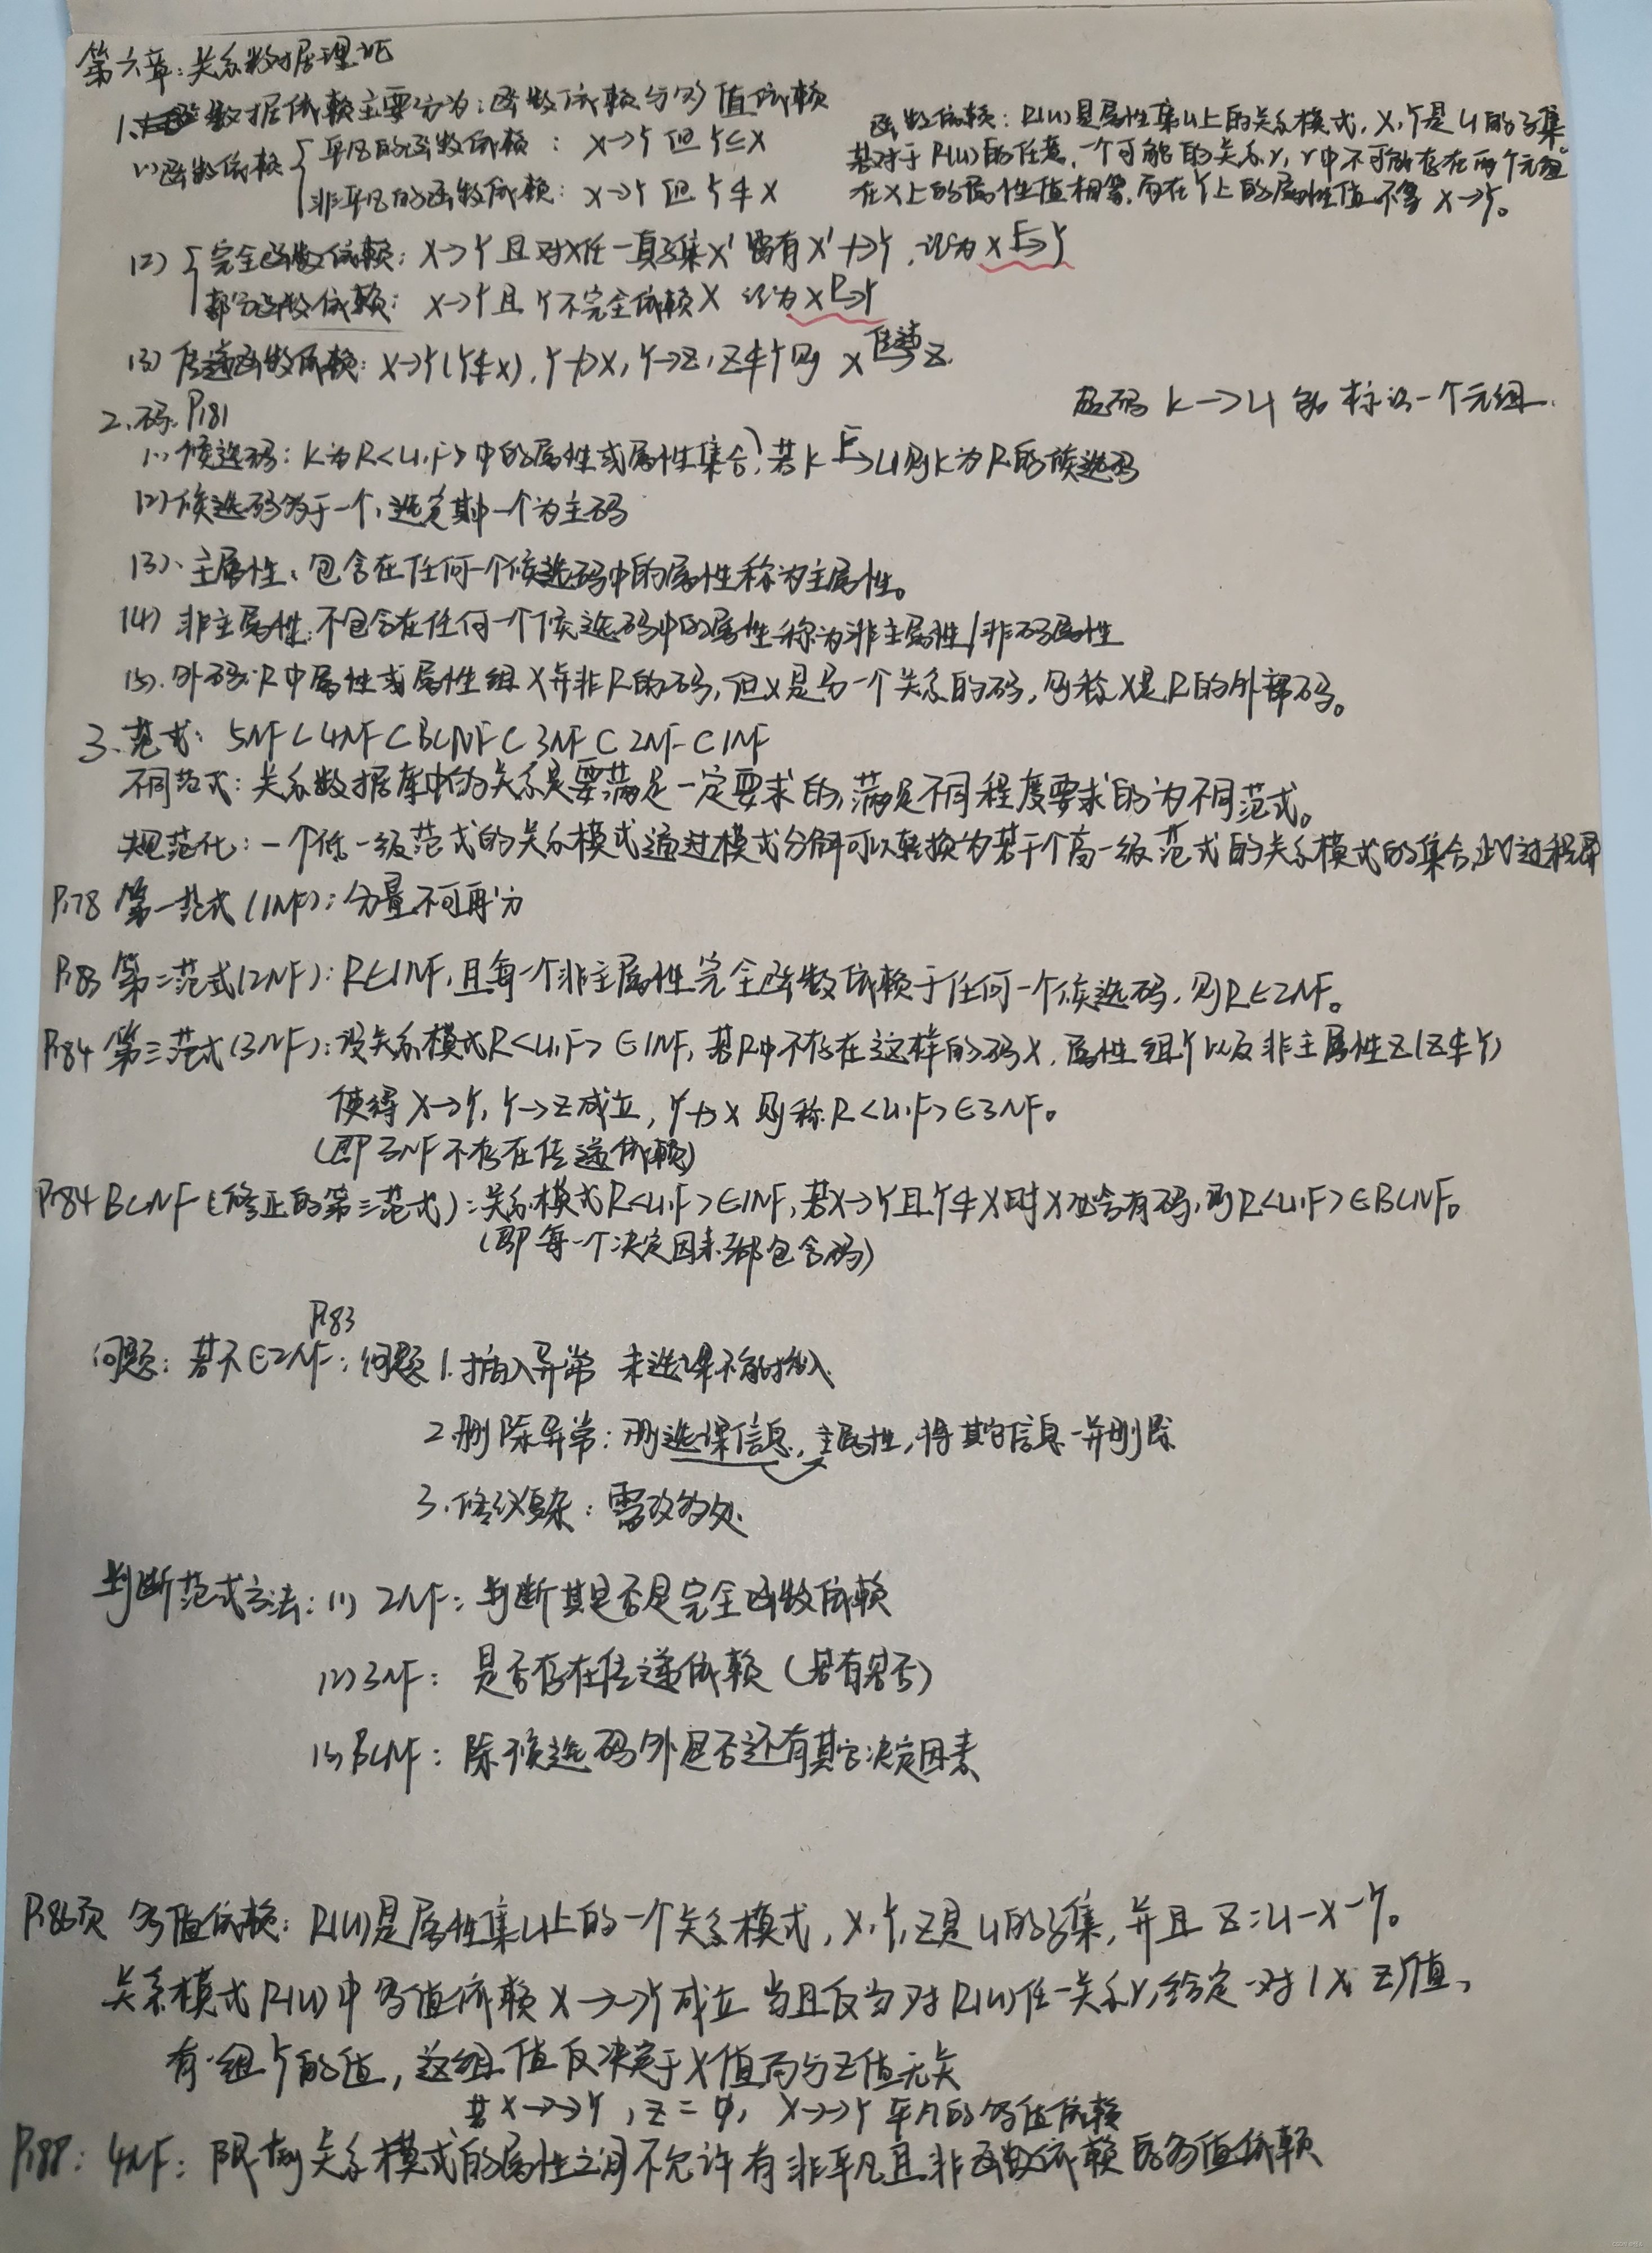 第六章:关系数据理论
1. 数据依赖主要分为:函数依赖与多值依赖
(1)函数依赖 { 平凡的函数依赖: X→Y 但 Y⊆X
非平凡的函数依赖: X→Y 但 Y⊄X
函数依赖: R(U)是属性集U上的关系模式, X, Y是U的子集
若对于R(U)的任意一个可能的关系r, r中不可能存在两个元组
在X上的属性值相等,而在Y上的属性值不等 X→Y。
(2) { 完全函数依赖: X→Y 且对X任一真子集X' 皆有X'↛Y, 记为 X F→Y
部分函数依赖: X→Y且 Y不完全依赖X 记为 X P→Y
(3) 传递函数依赖: X→Y(Y⊄X), Y↛X, Y→Z, Z⊄Y 则 X 传递→ Z.
2. 码. P181
超码 K→U 能标识一个元组.
(1). 候选码: K为R<U,F>中的属性或属性集合, 若K F→U则K为R的候选码
(2) 候选码多于一个, 选定其中一个为主码
(3)、主属性、包含在任何一个候选码中的属性称为主属性。
(4) 非主属性:不包含在任何一个候选码中的属性称为非主属性/非码属性
(5). 外码: R中属性或属性组X并非R的码,但X是另一个关系的码,则称X是R的外部码。
3. 范式: 5NF⊂4NF⊂BCNF⊂3NF⊂2NF⊂1NF
不同范式:关系数据库中的关系是要满足一定要求的,满足不同程度要求的为不同范式。
规范化:一个低一级范式的关系模式通过模式分解可以转换为若干个高一级范式的关系模式的集合,此过程即
P178 第一范式(1NF):分量不可再分
P183 第二范式(2NF): R∈1NF, 且每一个非主属性完全函数依赖于任何一个候选码, 则R∈2NF。
P184 第三范式(3NF):设关系模式R<U,F>∈1NF, 若R中不存在这样的码X, 属性组Y以及非主属性Z(Z⊄Y)
使得X→Y, Y→Z成立, Y↛X 则称R<U,F>∈3NF。
(即3NF不存在传递依赖)
P184 BCNF(修正的第三范式):关系模式R<U,F>∈1NF, 若X→Y且Y⊄X时X必含有码,则R<U,F>∈BCNF。
(即每一个决定因素都包含码)
P183
问题:若不∈2NF:问题 1. 插入异常 未选课不能插入
2. 删除异常:删选课信息, 主属性,将其它信息一并删除
3. 修改复杂:需改多处.
判断范式方法:(1) 2NF:判断其是否是完全函数依赖
(2) 3NF: 是否存在传递依赖(若有则否)
(3) BCNF: 除候选码外是否还有其它决定因素
P186页 多值依赖: R(U)是属性集U上的一个关系模式, X, Y, Z是U的子集, 并且 Z=U-X-Y。
关系模式R(U)中多值依赖X→→Y成立 当且仅当对R(U)任一关系r,给定一对(X, Z)值,
有一组Y的值, 这组值仅决定于X值而与Z值无关
若X→→Y, Z=Φ, X→→Y 平凡的多值依赖
P188: 4NF: 限制关系模式的属性之间不允许有非平凡且非函数依赖的多值依赖